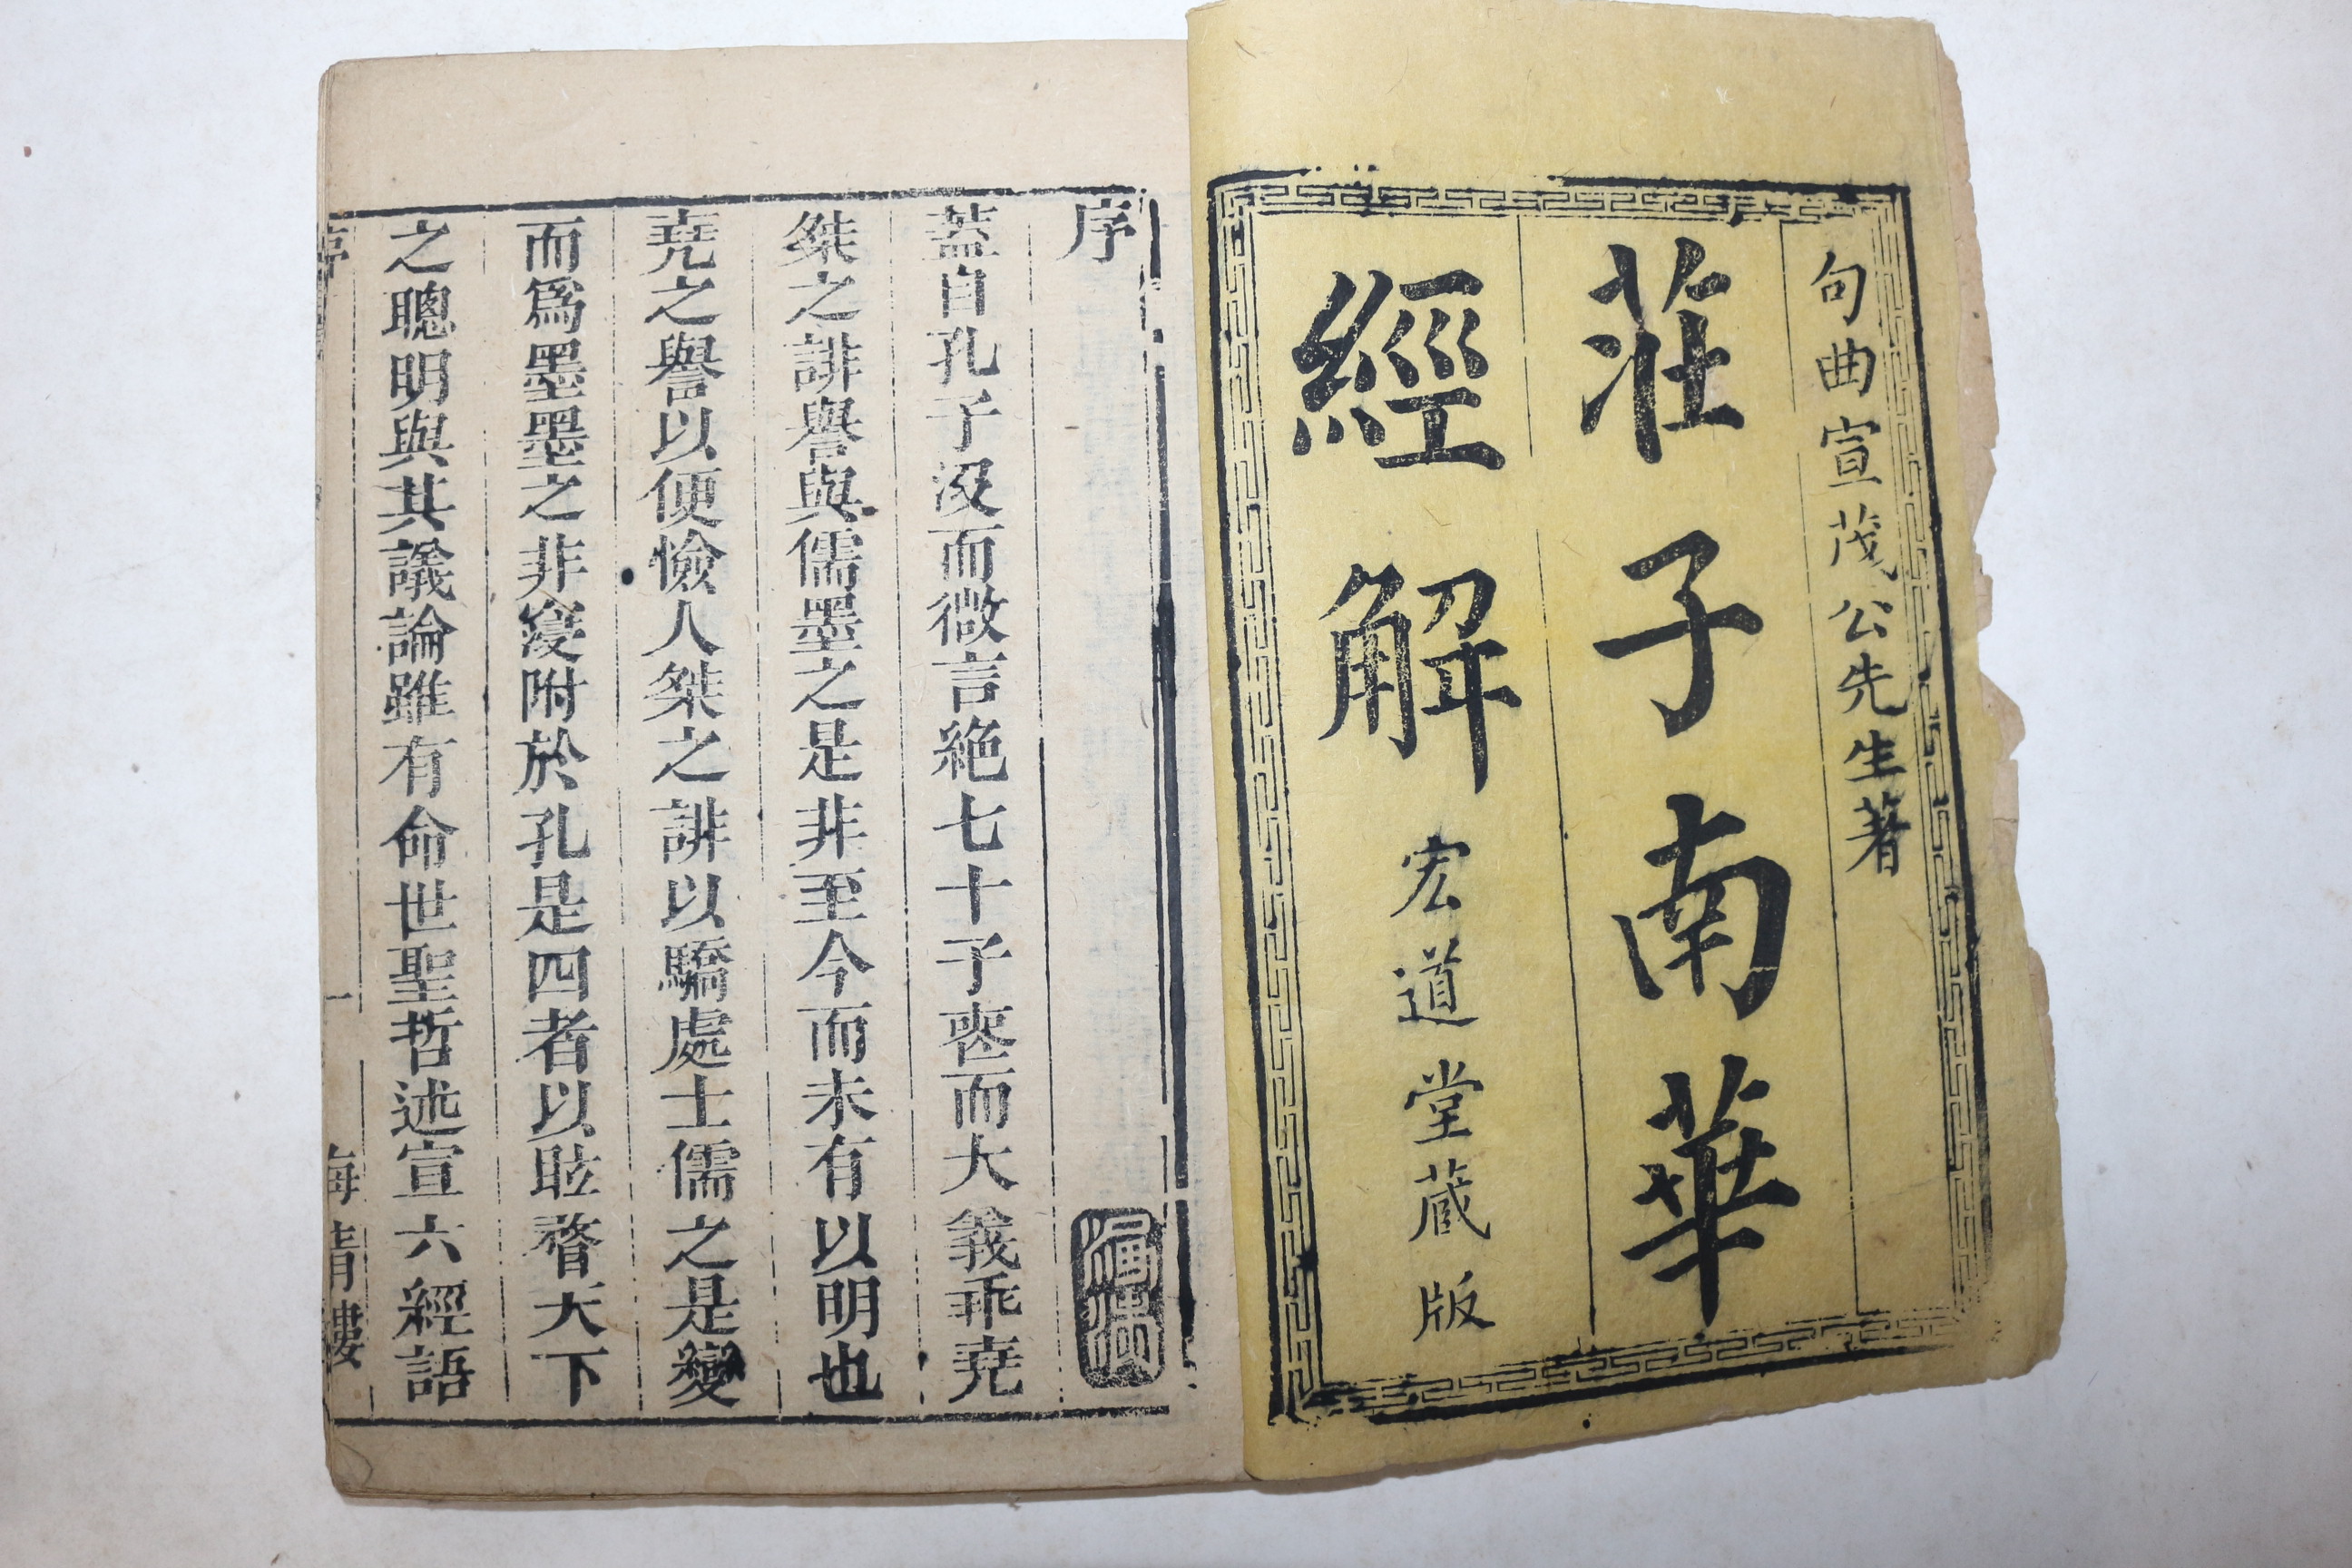 句曲宣茂公先生著
莊子南華
經解 宏道堂藏版
序
蓋自孔子沒而微言絕七十子喪而大義乖堯
桀之誹譽與儒墨之是非至今而未有以明也
堯之譽以便憸人桀之誹以驕處士儒之是變
而爲墨墨之非寖附於孔是四者以眩瞀天下
之聰明與其議論雖有命世聖哲述宣六經語
序 一 海清樓